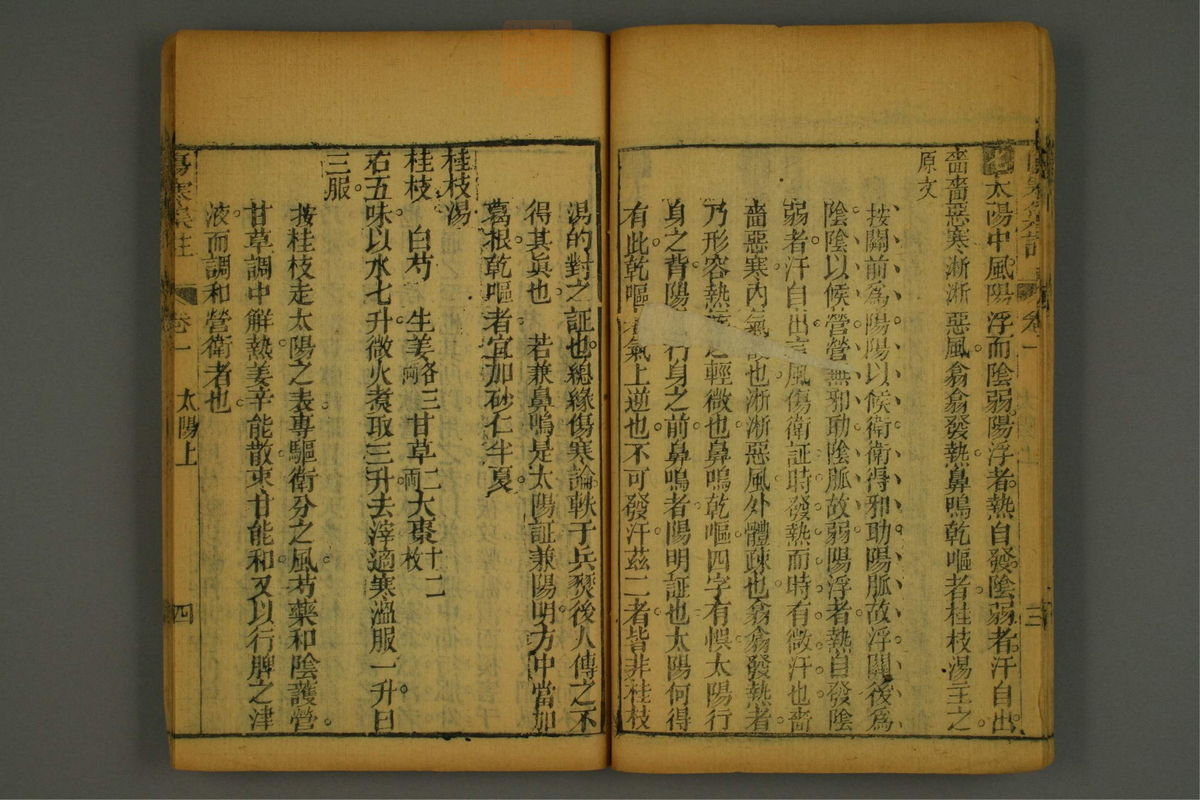 太陽中風陽浮而陰弱陽浮者熱自發陰弱者汗自出
嗇嗇惡寒淅淅惡風翕翕發熱鼻鳴乾嘔者桂枝湯主之
原文
按關前為陽陽以候衛衛得邪助陽脈故浮關後為
陰陰以候營營無邪助陰脈故弱陽浮者熱自發陰
弱者汗自出言風傷衛証時發熱而時有微汗也嗇
嗇惡寒內氣 也淅淅惡風外體疎也翕翕發熱者
乃形容熱 輕微也鼻鳴乾嘔四字有悞太陽行
身之背陽 行身之前鼻鳴者陽明証也太陽何得
有此乾嘔 氣上逆也不可發汗茲二者皆非桂枝
卷一
三
湯的對之証也總緣傷寒論軼于兵燹後人傳之不
得其眞也 若兼鼻鳴是太陽証兼陽明方中當加
葛根乾嘔者宜加砂仁半夏
桂枝湯
桂枝 白芍 生姜各三兩 甘草二兩 大棗十二枚
右五味以水七升微火煮取三升去滓適寒溫服一升日
三服
按桂枝走太陽之表專驅衛分之風芍藥和陰護營
甘草調中解熱姜辛能散棗甘能和又以行脾之津
液而調和營衛者也
卷一 太陽上
四